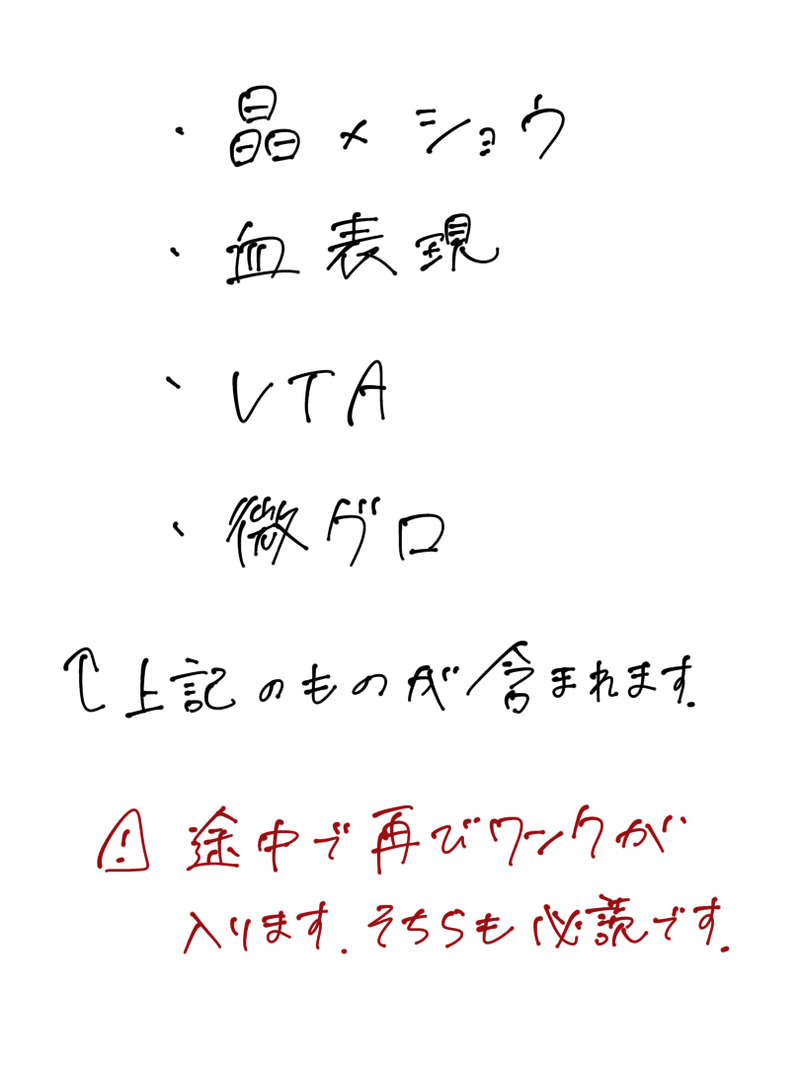 ・晶×ショウ
・血表現
・VTA
・微グロ
↑上記のものが含まれます.
⚠途中で再びワンクが
入ります.そちらも必読です.